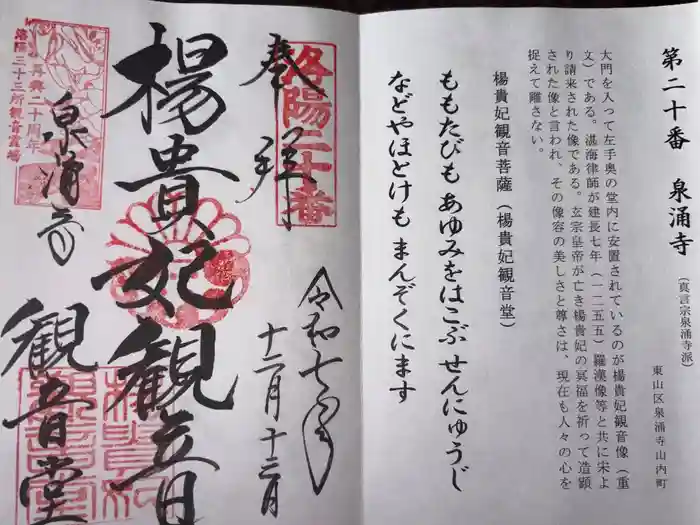 第二十番 泉涌寺
(真言宗泉涌寺派)
東山区泉涌寺山内町
大門を入って左手奥の堂内に安置されているのが楊貴妃観音像(重
文)である。湛海律師が建長七年(一二五五)羅漢像等と共に宋よ
り請来された像である。玄宗皇帝が亡き楊貴妃の冥福を祈って造顕
された像と言われ、その像容の美しさと尊さは、現在も人々の心を
捉えて離さない。
楊貴妃観音菩薩(楊貴妃観音堂)
ももたびも あゆみをはこぶ せんにゅうじ
などやほとけも まんぞくにます
奉拝
洛陽二十番
令和七年
十二月十三日
楊貴妃観音
観音堂
楊貴妃観音堂
泉涌寺
再興二十周年
洛陽三十三所観音霊場